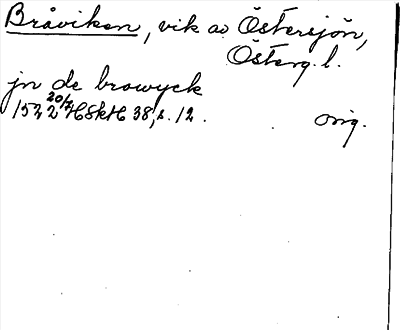 Bråviken, vik av Östersjön,
Österg. l.
jn de browyck
20/2
1522 HSkH 38, s. 12. orig.